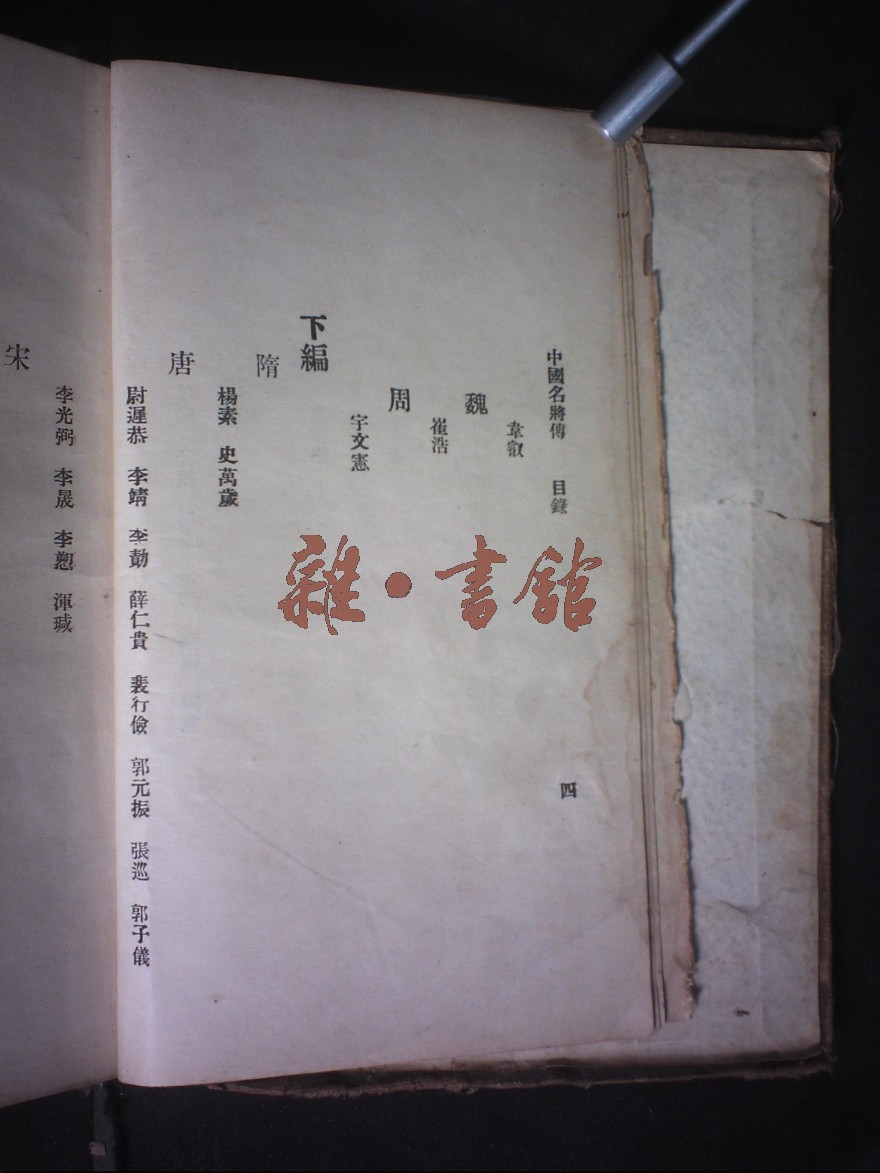 中國名將傳 目錄 四
韋叡
魏
崔浩
周
宇文憲
下編
隋
楊素 史萬歲
唐
尉遲恭 李靖 李勣 薛仁貴 裴行儉 郭元振 張巡 郭子儀
李光弼 李晟 李愬 渾瑊
宋
雜·書館